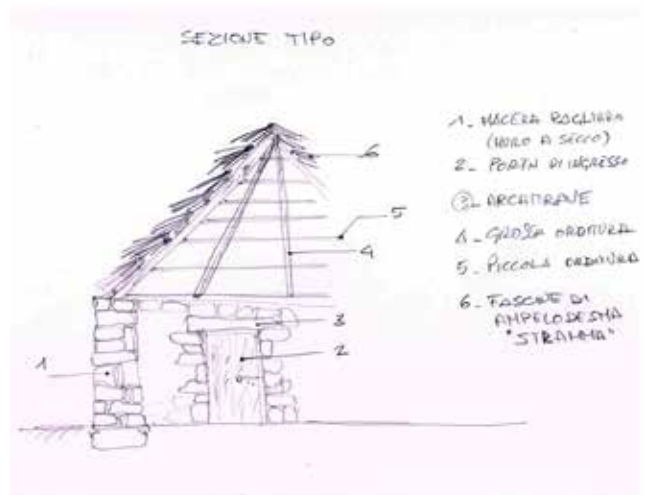 SEZIONE TIPO
1_ MACERA
(MURO A SECCO)
2_ PORTA DI INGRESSO
3_ ARCHITRAVE
4_ GROSSA ORDITURA
5_ PICCOLA ORDITURA
6_ FASCINE DI
AMPELODESMA
"STRAMMA"
6
5
4
3
2
1